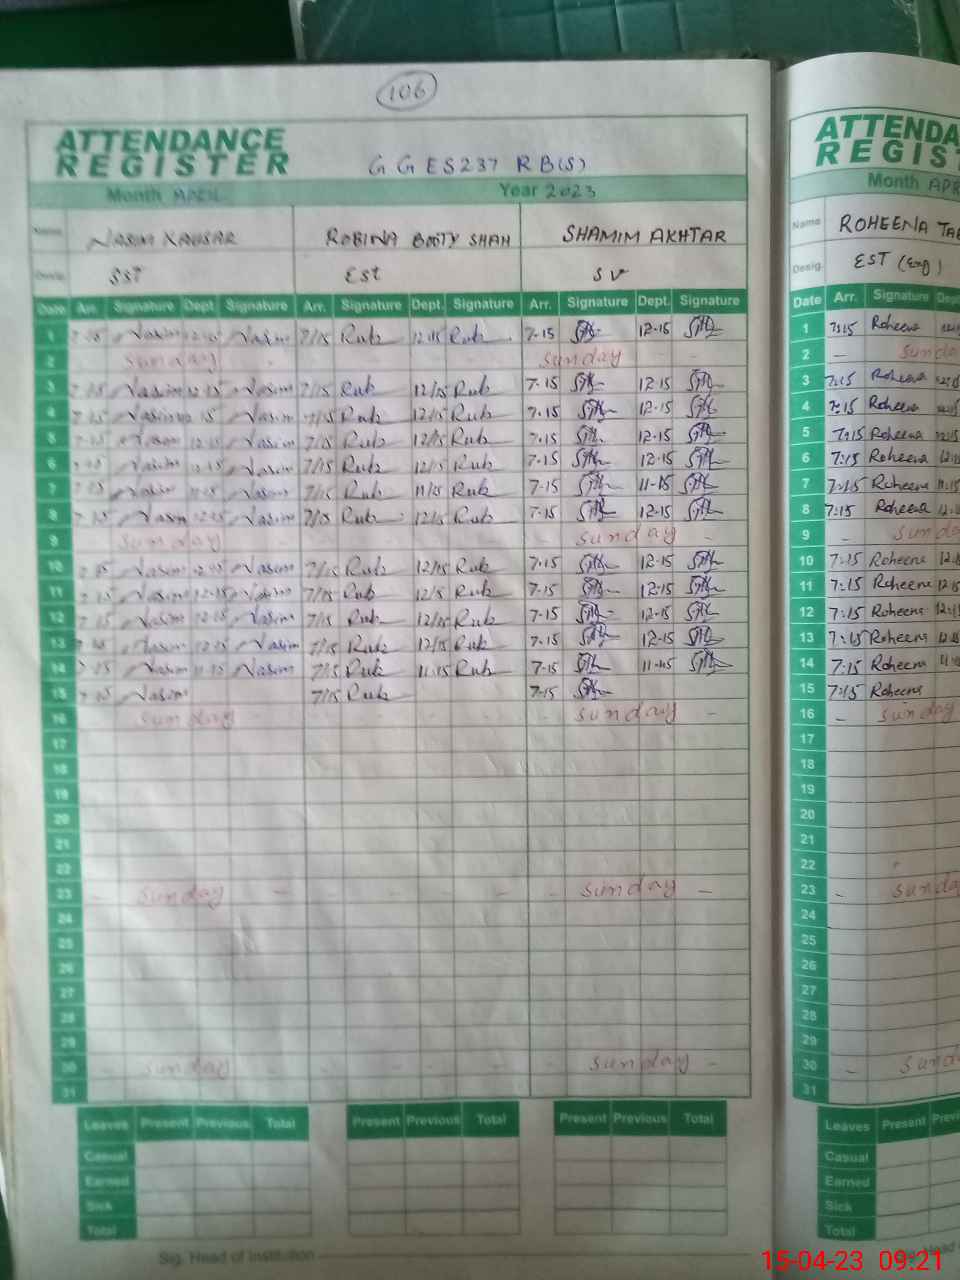 106
ATTENDANCE
REGISTER
G G ES 237 R B(S)
Month APRIL Year 2023
Name NASIM KAUSAR ROBINA BOOTY SHAH SHAMIM AKHTAR
Desig. SST ESt SV
Date Arr. Signature Dept. Signature Arr. Signature Dept. Signature Arr. Signature Dept. Signature
1 7-15 Nasim 12-15 Nasim 7/15 Rub 12/15 Rub 7-15 12-15
2 Sunday - Sunday - -
3 7-15 Nasim 12-15 Nasim 7/15 Rub 12/15 Rub 7-15 12-15
4 7-15 Nasim 12-15 Nasim 7/15 Rub 12/15 Rub 7-15 12-15
5 7-15 Nasim 12-15 Nasim 7/15 Rub 12/15 Rub 7-15 12-15
6 7-15 Nasim 12-15 Nasim 7/15 Rub 12/15 Rub 7-15 12-15
7 7-15 Nasim 11-15 Nasim 7/15 Rub 11/15 Rub 7-15 11-15
8 7-15 Nasim 12-15 Nasim 7/15 Rub 12/15 Rub 7-15 12-15
9 Sunday - Sunday -
10 7-15 Nasim 12-15 Nasim 7/15 Rub 12/15 Rub 7-15 12-15
11 7-15 Nasim 12-15 Nasim 7/15 Rub 12/15 Rub 7-15 12-15
12 7-15 Nasim 12-15 Nasim 7/15 Rub 12/15 Rub 7-15 12-15
13 7-15 Nasim 12-15 Nasim 7/15 Rub 12/15 Rub 7-15 12-15
14 7-15 Nasim 11-15 Nasim 7/15 Rub 11/15 Rub 7-15 11-15
15 7-15 Nasim 7/15 Rub 7-15
16 Sunday - Sunday -
17
18
19
20
21
22
23 Sunday - Sunday -
24
25
26
27
28
29
30 Sunday - Sunday -
31
Leaves Present Previous Total Present Previous Total Present Previous Total
Casual
Earned
Sick
Total
Sig. Head of Institution
REGIS
Month
Name ROHEENA
Desig. EST (Eng)
Date Arr. Signature
1 7:15 Roheena
2 -
3 7:15 Roheena
4 7:15 Roheena
5 7:15 Roheena
6 7:15 Roheena
7 7:15 Roheena 11:15
8 7:15 Roheena
9 -
10 7:15 Roheena
11 7:15 Roheena
12 7:15 Roheena
13 7:15 Roheena
14 7:15 Roheena
15 7:15 Roheena
16 - Sunday
17
18
19
20
21
22
23 -
24
25
26
27
28
29
30 -
31
Leaves Present
Casual
Earned
Sick
Total
15-04-23 09:21